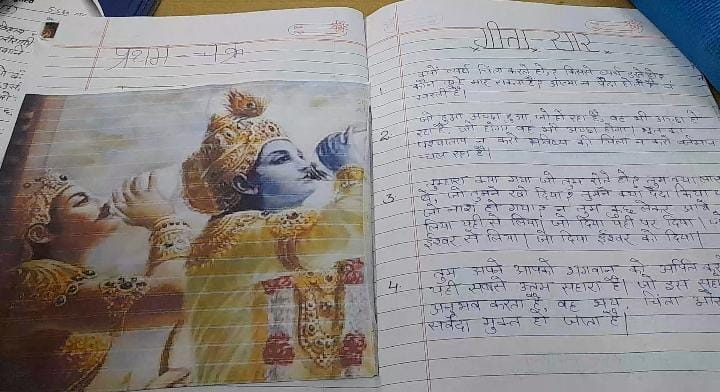 प्रथम चक्र
गीता सार
1. क्यों व्यर्थ चिंता करते हो? किससे व्यर्थ डरते हो?
कौन तुम्हें मार सकता है? आत्मा न पैदा होती है न
मरती है।
2. जो हुआ, अच्छा हुआ, जो हो रहा है, वह भी अच्छा हो
रहा है, जो होगा, वह भी अच्छा होगा। भूत का
पश्चाताप न करो भविष्य की चिंता न करो वर्तमान
चल रहा है।
3. तुम्हारा क्या गया जो तुम रोते हो? तुम क्या लाए
थे, जो तुमने खो दिया? तुमने क्या पैदा किया
जो नाश हो गया? न तुम कुछ लेकर आये
लिया यही से लिया, जो दिया यही पर दिया।
ईश्वर से लिया। जो दिया ईश्वर को दिया।
4. तुम अपने आपको भगवान को अर्पित
यही सबसे उत्तम सहारा है। जो इस
अनुभव करता है, वह भय, चिंता
सर्वदा मुक्त हो जाता है।